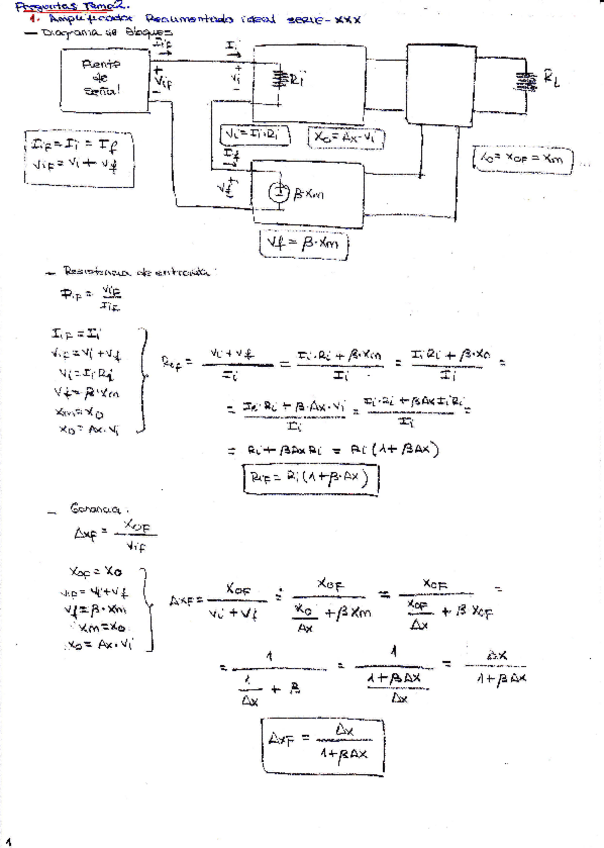 Preguntas Tema 2.
1. Amplificador Realimentado ideal SERIE-XXX
— Diagrama de Bloques
IiF Ii
Fuente de señal
+ ViF -
+ Vi -
Ri
RL
Vi = Ii·Ri
Xo = Ax·Vi
IiF = Ii = If
ViF = Vi + Vf
Xo = XoF = Xm
If
+ Vf -
β·Xm
Vf = β·Xm
— Resistencia de entrada:
RiF = ViF / IiF
IiF = Ii
ViF = Vi + Vf
Vi = Ii Ri
Vf = β·Xm
Xm = Xo
Xo = Ax·Vi
RiF = (Vi + Vf) / Ii = (Ii·Ri + β·Xm) / Ii = (Ii Ri + β·Xo) / Ii =
= (Ii·Ri + β·Ax·Vi) / Ii = (Ii·Ri + βAx Ii Ri) / Ii =
= Ri + βAxRi = Ri (1 + βAx)
RiF = Ri (1 + β·Ax)
— Ganancia:
AxF = XoF / ViF
XoF = Xo
ViF = Vi + Vf
Vf = β·Xm
Xm = Xo
Xo = Ax·Vi
AxF = XoF / (Vi + Vf) = XoF / (Xo/Ax + βXm) = XoF / (XoF/Ax + β XoF) =
= 1 / (1/Ax + β) = 1 / ((1 + βAx)/Ax) = Ax / (1 + βAx)
AxF = Ax / (1 + βAx)
1